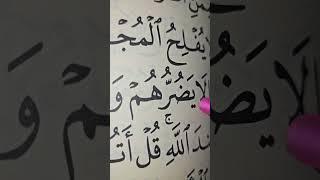 يُفْلِحُ ٱلْمُجْ
لَا يَضُرُّهُمْ وَ
ندَ ٱللَّهِۚ قُلْ أَتُ